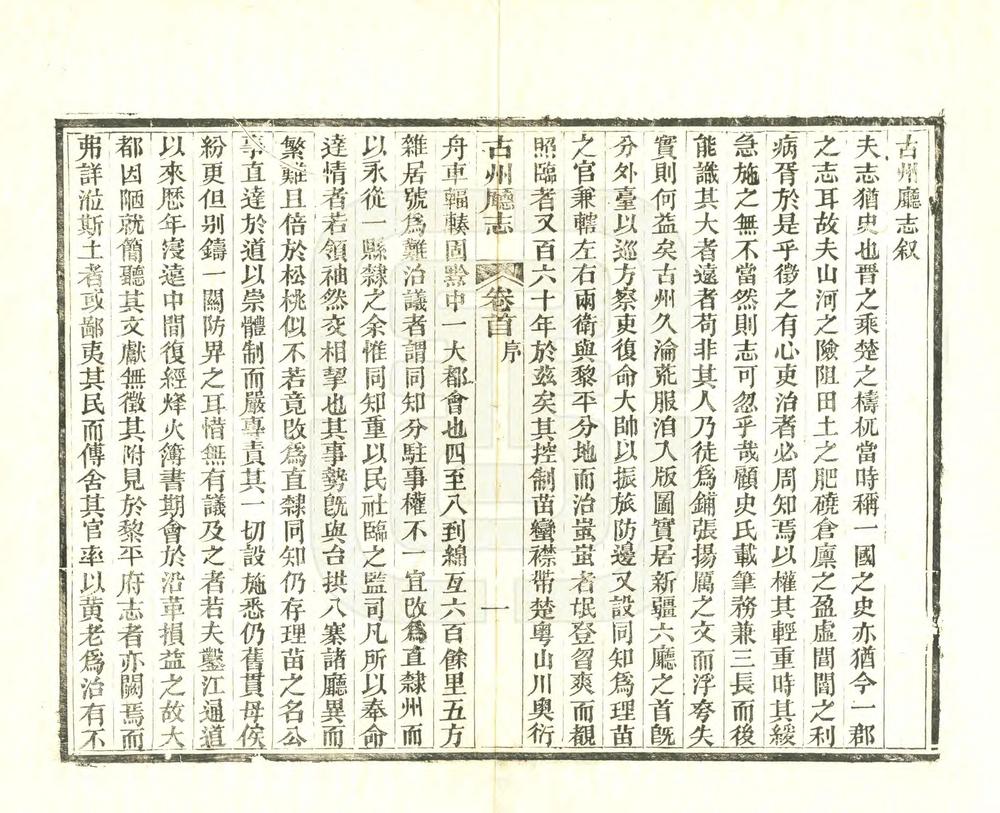 古州廳志叙
夫志猶史也晋之乘楚之檮杌當時稱一國之史亦猶今一郡
之志耳故夫山河之險阻田土之肥磽倉廪之盈虛閭閻之利
病胥於是乎徵之有心吏治者必周知焉以權其輕重時其緩
急施之無不當然則志可忽乎哉顧史氏載筆務兼三長而後
能識其大者遠者苟非其人乃徒爲鋪張揚厲之文而浮夸失
實則何益矣古州久淪荒服洎入版圖實居新疆六廳之首旣
分外臺以巡方察吏復命大帥以振旅防邊又設同知爲理苗
之官兼轄左右兩衛與黎平分地而治蚩蚩者氓登曶爽而覩
照臨者又百六十年於兹矣其控制苗蠻襟帶楚粵山川奥衍
古州廳志 卷首 序 一
舟車輻輳固黔中一大都會也四至八到綿亙六百餘里五方
雜居號爲難治議者謂同知分駐事權不一宜改爲直隸州而
以永從一縣隸之余惟同知重以民社臨之監司凡所以奉命
達情者若領袖然交相挈也其事勢旣與台拱八寨諸廳異而
繁難且倍於松桃似不若竟改爲直隸同知仍存理苗之名公
事直達於道以崇體制而嚴專責其一切設施悉仍舊貫毋俟
紛更但别鑄一關防畀之耳惜無有議及之者若夫鑿江通道
以來歷年寖遠中間復經烽火簿書期會於沿革損益之故大
都因陋就簡聽其文獻無徵其附見於黎平府志者亦闕焉而
弗詳涖斯土者或鄙夷其民而傳舍其官率以黄老爲治有不